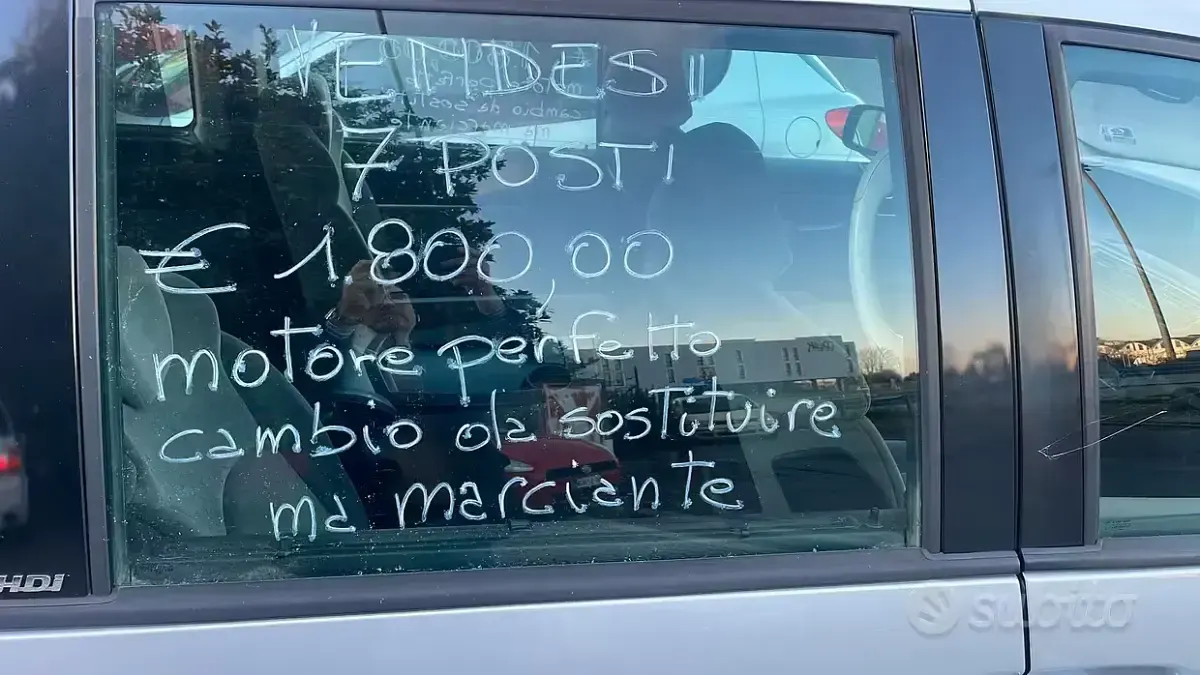 VENDESI
7 POSTI
€ 1.800,00
motore perfetto
cambio da sostituire
ma marciante
HDI
subito